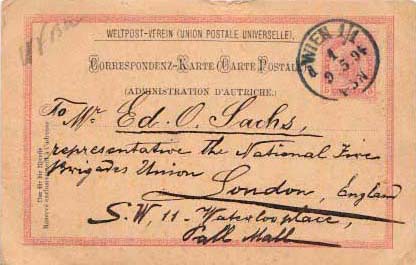 WELTPOST-VEREIN (UNION POSTALE UNIVERSELLE).
CORRESPONDENZ-KARTE (CARTE POSTALE)
(ADMINISTRATION D'AUTRICHE.)
WIEN 1/1
8
1
9 5 94
To Mr. Ed. O. Sachs,
representative the National Fire
Brigades Union
London, England
S.W, 11 - Waterlooplace,
Pall Mall
Nur für die Adresse
Réservé exclusivement à l'adresse